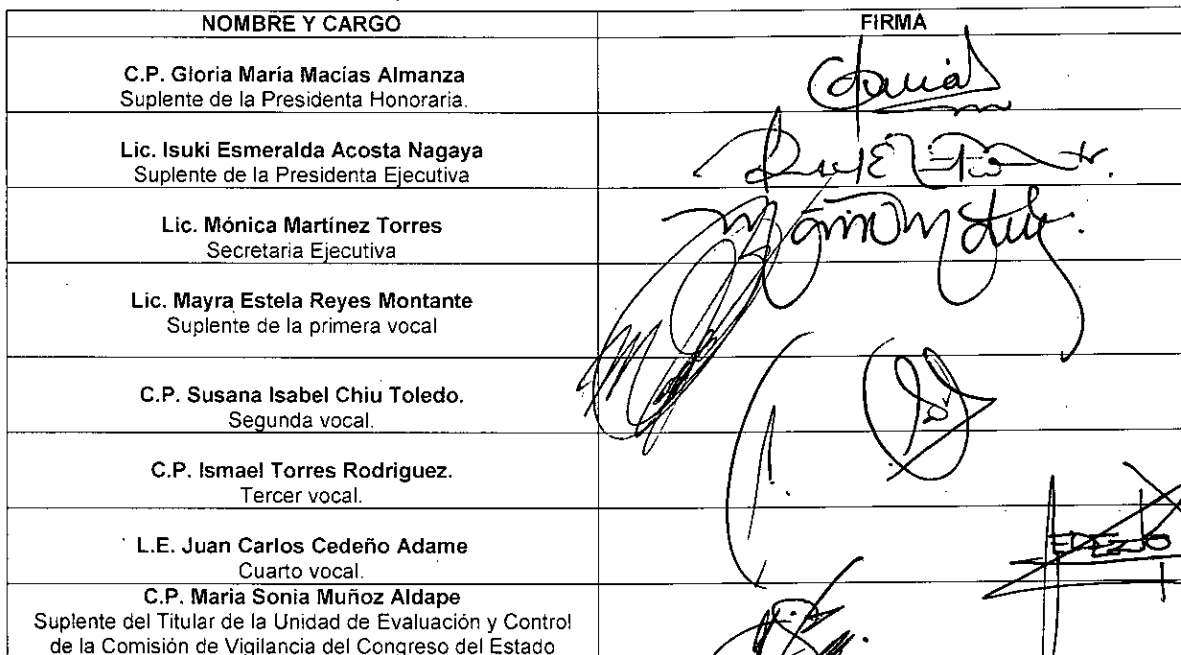 NOMBRE Y CARGO FIRMA
C.P. Gloria María Macías Almanza
Suplente de la Presidenta Honoraria.
Lic. Isuki Esmeralda Acosta Nagaya
Suplente de la Presidenta Ejecutiva
Lic. Mónica Martínez Torres
Secretaria Ejecutiva
Lic. Mayra Estela Reyes Montante
Suplente de la primera vocal
C.P. Susana Isabel Chiu Toledo.
Segunda vocal.
C.P. Ismael Torres Rodriguez.
Tercer vocal.
L.E. Juan Carlos Cedeño Adame
Cuarto vocal.
C.P. Maria Sonia Muñoz Aldape
Suplente del Titular de la Unidad de Evaluación y Control
de la Comisión de Vigilancia del Congreso del Estado